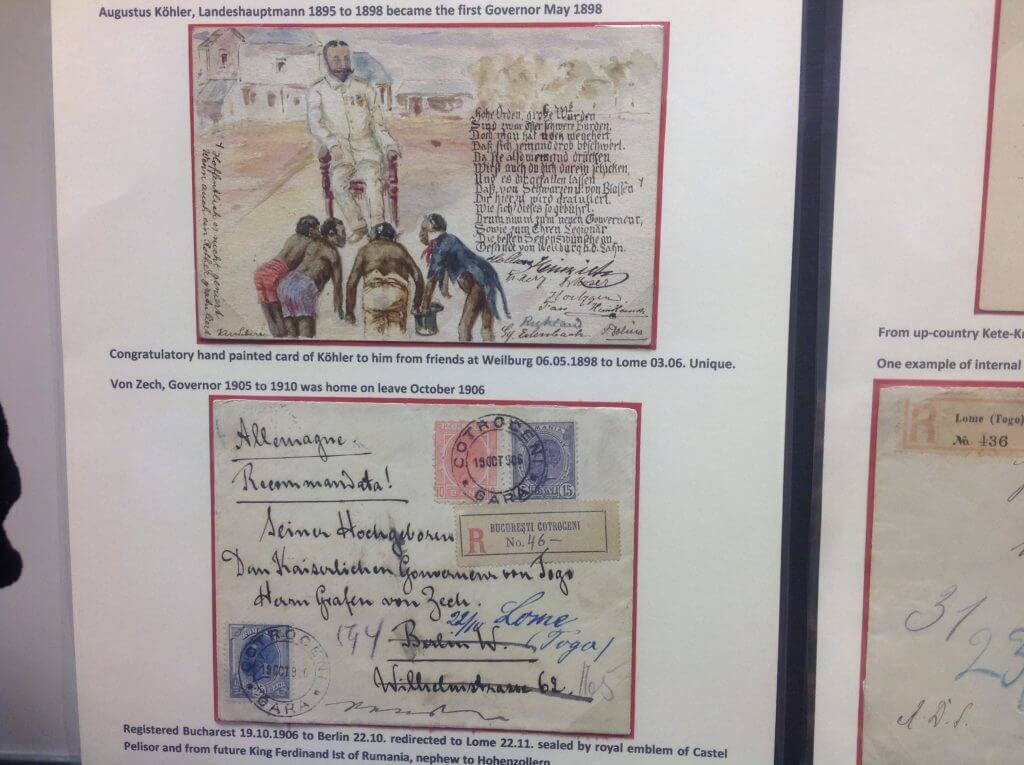 Augustus Köhler, Landeshauptmann 1895 to 1898 became the first Governor May 1898
Hohe Orden, große Würden
Sind zwar öfter schwere Bürden,
Doch man hat noch
Daß sich jemand drob beschwert.
Da sie also niemand drücken
Wirst auch du dich darein schicken,
Und es dir gefallen lassen
Daß, von Schwarzen u. von Blassen
Dir hierzu wird gratuliert.
Wie sich dieses so gebührt.
Drum nimm zum neuen Gouverneur,
Sowie zum Ehren Legionär
Die besten Segenswünsche an
Gesandt von Weilburg a. d. Lahn.
Hoffentlich es nicht geniert
Wenn auch ein Rother gratuliert
Congratulatory hand painted card of Köhler to him from friends at Weilburg 06.05.1898 to Lome 03.06. Unique.
Von Zech, Governor 1905 to 1910 was home on leave October 1906
Allemagne.
Recommandata!
COTROCENI
19 OCT 906
GARA
10
15
R
BUCUREŞTI COTROCENI
No. 46-
Seiner Hochgeboren
Den Kaiserlichen Gouverneur von Togo
Herrn Grafen von Zech.
Lome
(Togo)
Berlin W.
Wilhelmstrasse 62.
COTROCENI
19 OCT 906
GARA
Registered Bucharest 19.10.1906 to Berlin 22.10. redirected to Lome 22.11. sealed by royal emblem of Castel
Pelisor and from future King Ferdinand Ist of Rumania, nephew to Hohenzollern
From up-country Kete-K
One example of internal
R
Lome (Togo)
No. 436
31